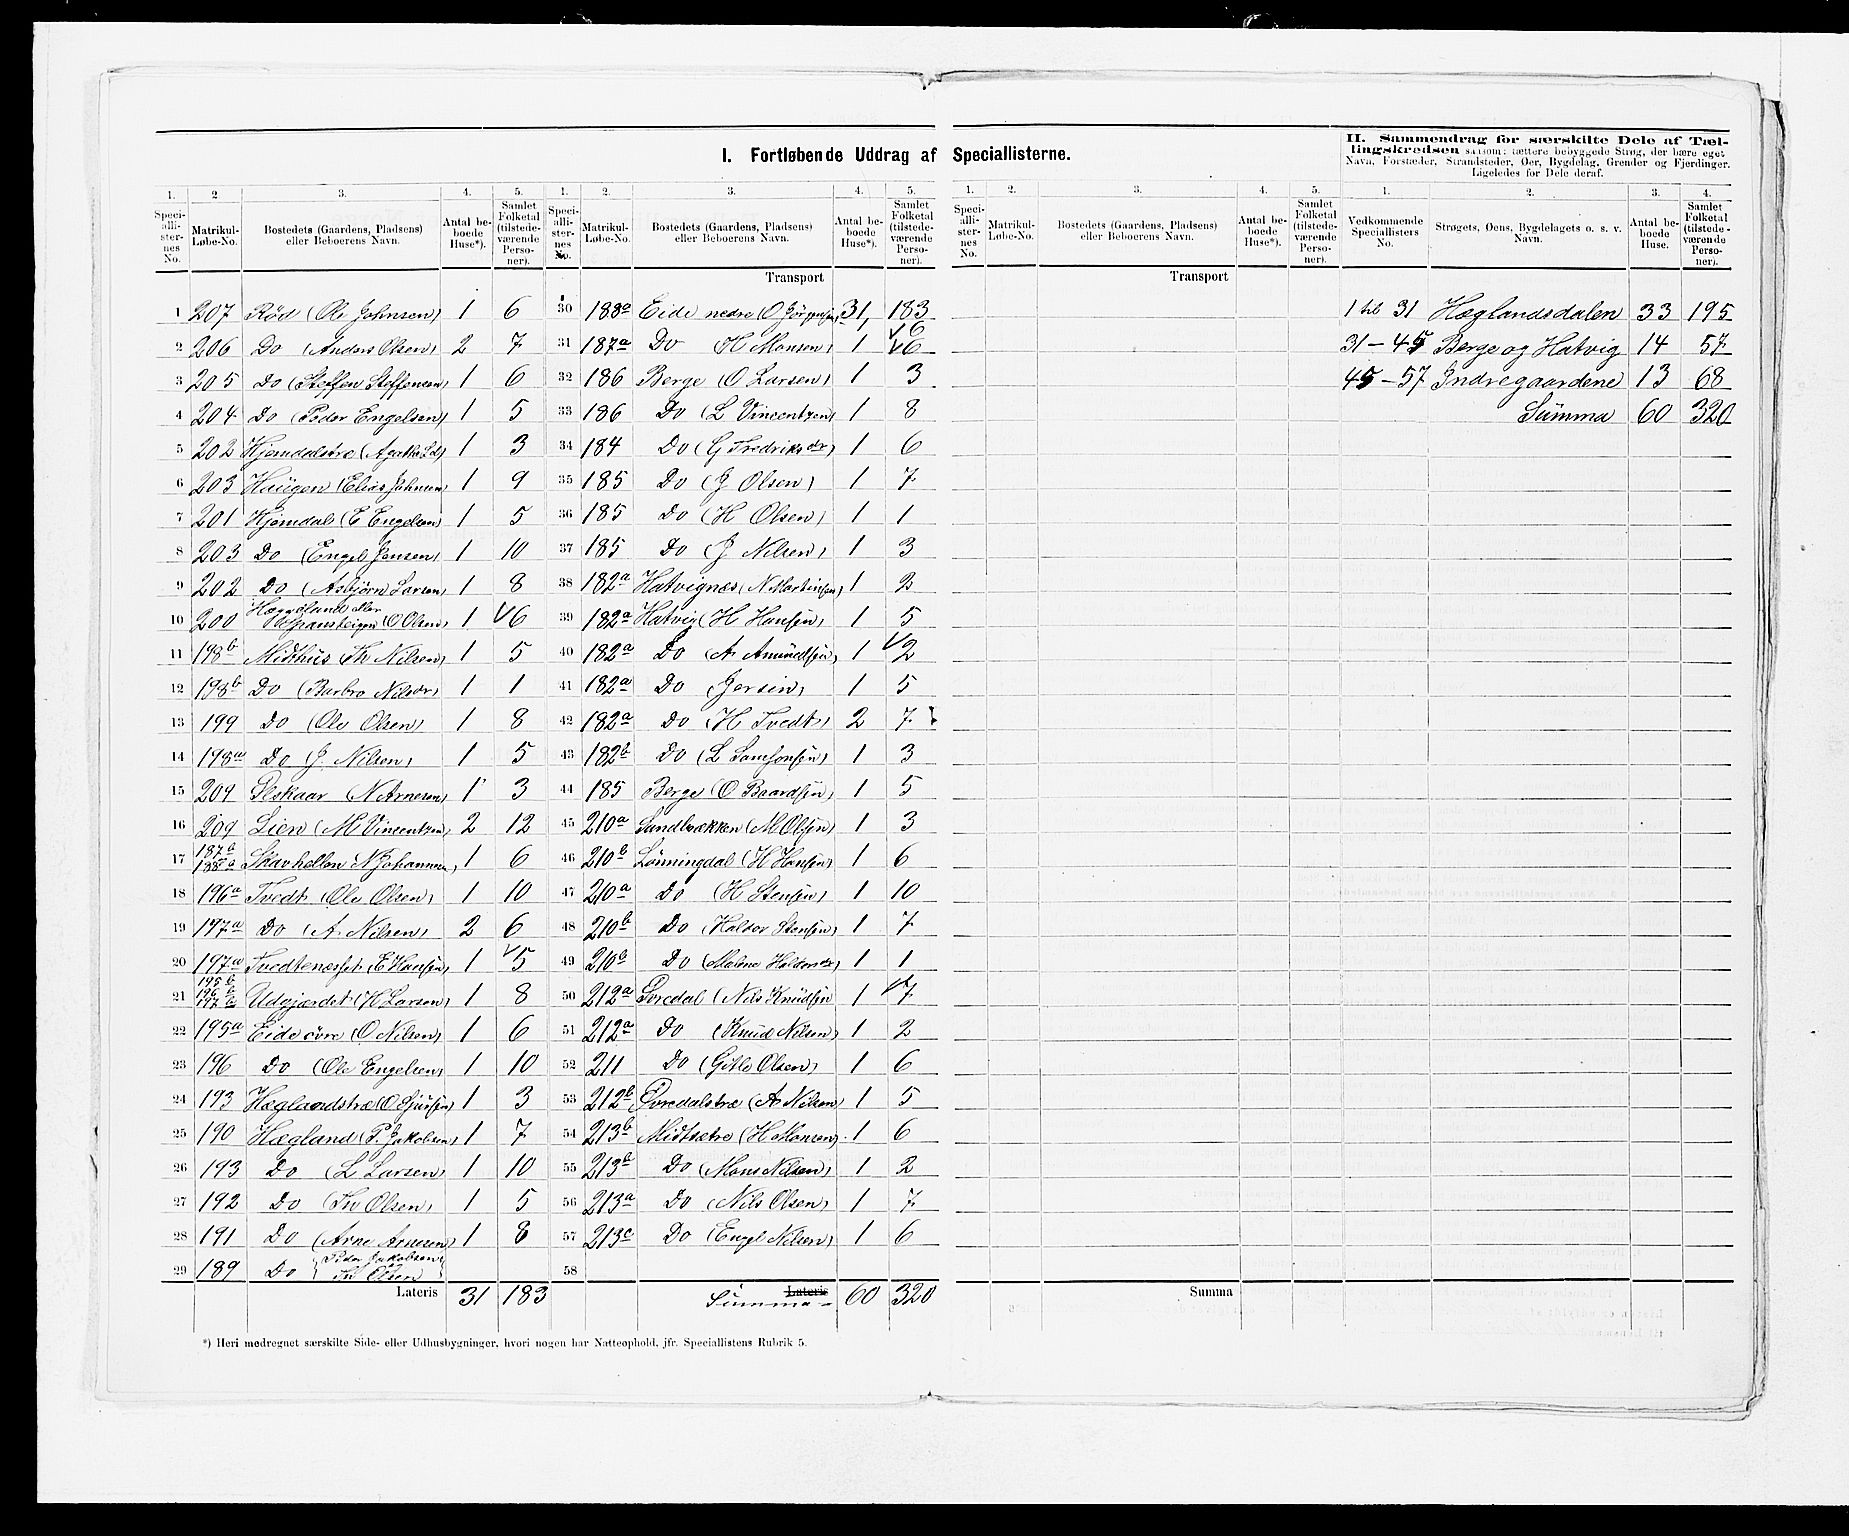 I. Fortløbende Uddrag af Speciallisterne.
II. Sammendrag for særskilte Dele af Tæl-
lingskredsen saasom: tættere bebyggede Strøg, der bære eget
Navn, Forstæder, Strandsteder, Øer, Bygdelag, Grender og Fjerdinger.
Ligeledes for Dele deraf.
1. 2. 3. 4. 5. 1. 2. 3. 4. 5. 1. 2. 3. 4. 5. 1. 2. 3. 4.
Speciallisternes No. Matrikul-Løbe-No. Bostedets (Gaardens, Pladsens) eller Beboerens Navn. Antal beboede Huse*). Samlet Folketal (tilstedeværende Personer).
Speciallisternes No. Matrikul-Løbe-No. Bostedets (Gaardens, Pladsens) eller Beboerens Navn. Antal beboede Huse*). Samlet Folketal (tilstedeværende Personer).
Speciallisternes No. Matrikul-Løbe-No. Bostedets (Gaardens, Pladsens) eller Beboerens Navn. Antal beboede Huse*). Samlet Folketal (tilstedeværende Personer).
Vedkommende Speciallisters No. Strøgets, Øens, Bygdelagets o. s. v. Navn. Antal beboede Huse. Samlet Folketal (tilstedeværende Personer).
Transport
Transport
1 207 Rød (Ole Johnsen) 1 6
2 206 Do (Anders Olsen) 2 7
3 205 Do (Steffen Steffensen) 1 6
4 204 Do (Peder Engelsen) 1 5
5 202 Hjemdalstræ 1 3
6 203 Haugen (Elias Johnsen) 1 9
7 201 Hjemdal (E Engelsen) 1 5
8 203 Do (Engel Jansen) 1 10
9 202 Do (Asbjørn Larsen) 1 8
10 200 (O Olsen) 1 6
11 198b Midthus (Th Nilsen) 1 5
12 198b Do (Barbro Nilsdr) 1 1
13 199 Do (Ole Olsen) 1 8
14 198a Do (J. Nilsen) 1 5
15 209 (N Arnesen) 1 3
16 209 Lien (M Vincentzen) 2 12
17 187b 188a Skavhellen (N Johannesen) 1 6
18 196a Tvedt (Ole Olsen) 1 10
19 197a Do (A Nilsen) 2 6
20 197a Tvedteneset (E Hansen) 1 5
21 195b 196b 197b Udgjærdet (H Larsen) 1 8
22 195a Eide övre (O Nilsen) 1 6
23 196 Do (Ole Engelsen) 1 10
24 193 Hæglandstræ 1 3
25 190 Hægland (P. Jakobsen) 1 7
26 193 Do (L Larsen) 1 10
27 192 Do (Th Olsen) 1 5
28 191 Do (Arne Arnesen) 1 8
29 189 Do (Peder Jakobsen Th Olsen)
Lateris 31 183
30 188a Eide nedre (O Jørgensen) 31, 183
6
31 187a Do (H Monsen) 1 6
32 186 Berge (O Larsen) 1 3
33 186 Do (L Vincentzen) 1 8
34 184 Do (G Fredriksdr) 1 6
35 185 Do (J Olsen) 1 7
36 185 Do (H Olsen) 1 1
37 185 Do (J Nilsen) 1 3
38 182a Hatvignes (N Martinsen) 1 2
39 182a Hatvig (H Hansen) 1 5
40 182a Do (A Amundsen) 1 2
41 182a Do (Jersin) 1 5
42 182a Do (H Tvedt) 2 7
43 182b Do (L Samsonsen) 1 3
44 185 Berge (O Baardsen) 1 5
45 210a Sandbrækken (M Olsen) 1 3
46 210b Lønningdal (H Hansen) 1 6
47 210a Do (H Stensen) 1 10
48 210b Do (Haldor Stensen) 1 7
49 210b Do (Malene Haldorsdr) 1 1
50 212a Øvredal (Nils Knudsen 1 7
51 212a Do (Knud Nilsen) 1 2
52 211 Do (Gitle Olsen) 1 6
53 212b Øvredalstræ (A Nilsen) 1 5
54 213b Midtsætre (H Monsen) 1 6
55 213b Do (Mons Nilsen) 1 2
56 213a Do (Nils Olsen) 1 7
57 213c Do (Engel Nilsen) 1 6
58
Lateris
Summa 60 320
Summa
1 til 31 Hæglandsdalen 33 195
31 – 45 Berge og Hatvig 14 57
45 – 57 Indregaardene 13 68
Summa 60 320
*) Heri medregnet særskilte Side- eller Udhusbygninger, hvori nogen har Natteophold, jfr. Speciallistens Rubrik 5.